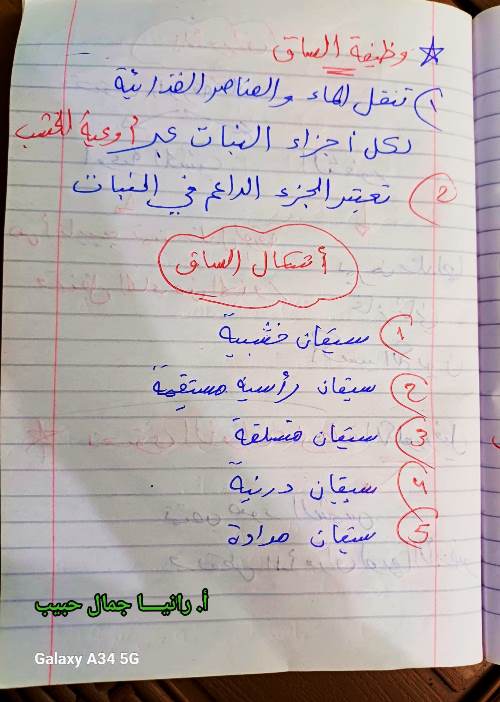 ☆ وظيفة الساق
١) تنقل الماء والعناصر الغذائية
لكل أجزاء النبات عبر أوعية الخشب
2) تعتبر الجزء الداعم في النبات
أشكال الساق
1) سيقان خشبية
2) سيقان رأسية مستقيمة
3) سيقان متسلقة
4) سيقان درنية
5) سيقان مدادة
أ. رانيا جمال حبيب
Galaxy A34 5G